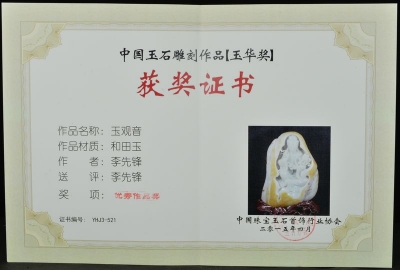 中国玉石雕刻作品【玉华奖】
获奖证书
作品名称：玉观音
作品材质：和田玉
作　　者：李先锋
送　　评：李先锋
奖　　项：优秀作品奖
证书编号：YHJ3-521
中国珠宝玉石首饰行业协会
二零一五年四月